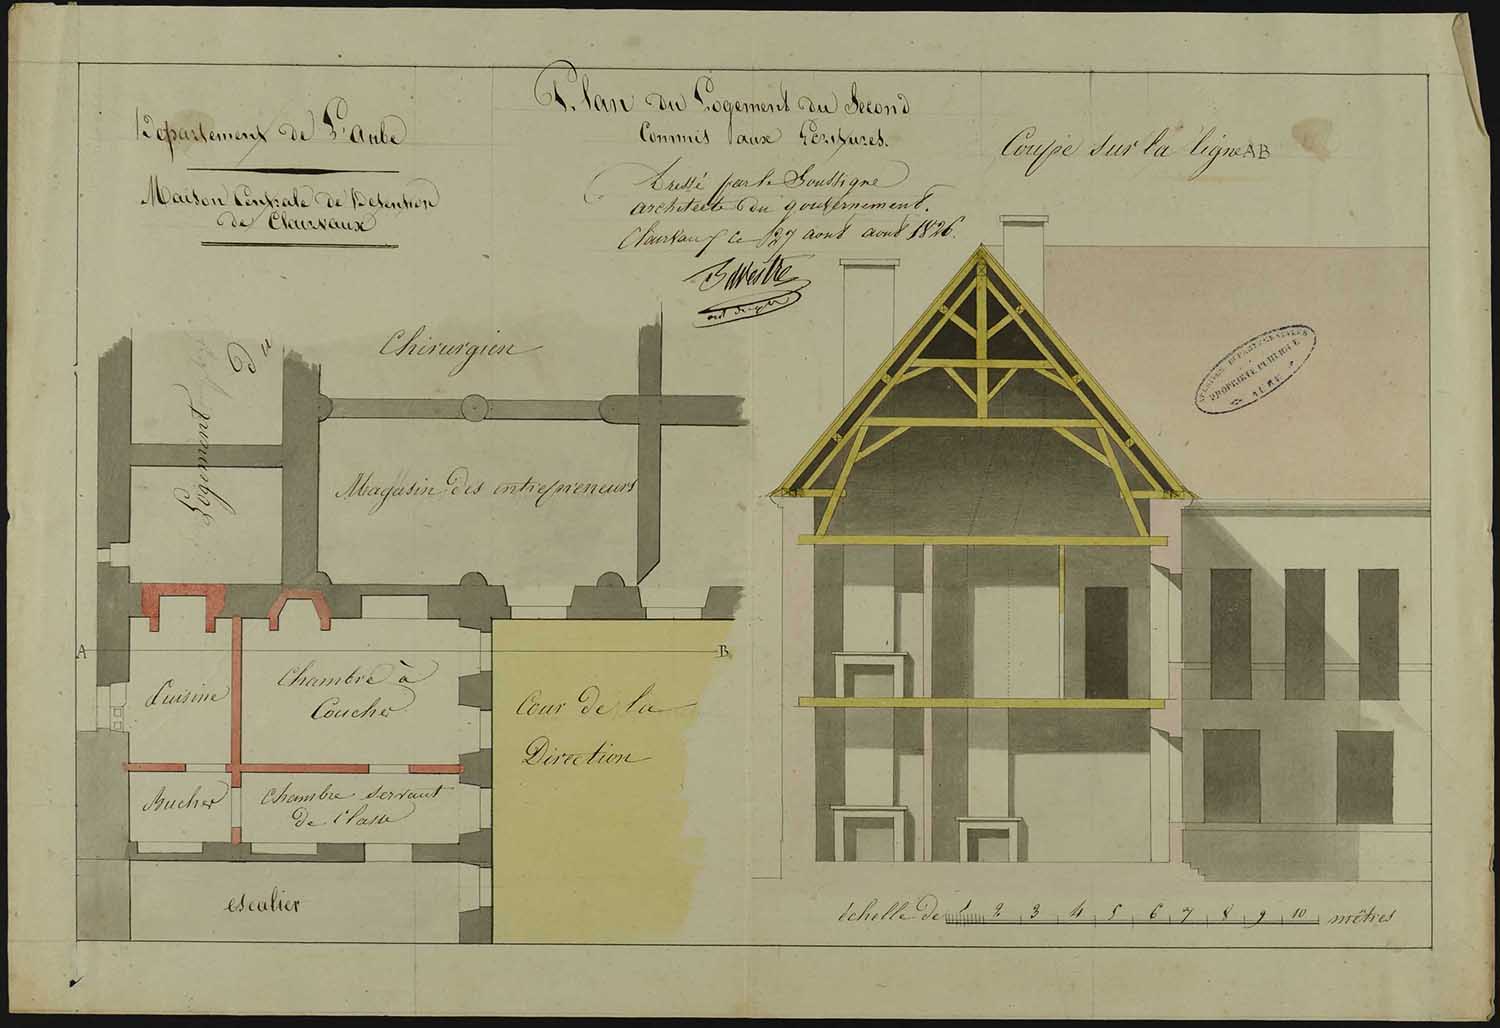 Département de L'aube
Maison Centrale de Détention
de Clairvaux
Plan du Logement du Second
Commis aux Ecritures.
Dressé par le Soussigné
architecte du gouvernement.
Clairvaux ce 27 aout aout 1826.
Coupe sur la ligne AB
Chirurgien
Logement
Du
Magasin des entrepreneurs
ARCHIVES DÉPARTEMENTALES
PROPRIÉTÉ PUBLIQUE
AUBE
A
B
Cuisine
Chambre à
Coucher
Cour de la
Direction
Bucher
Chambre servant
de Classe
escalier
échelle de 1 2 3 4 5 6 7 8 9 10 mètres